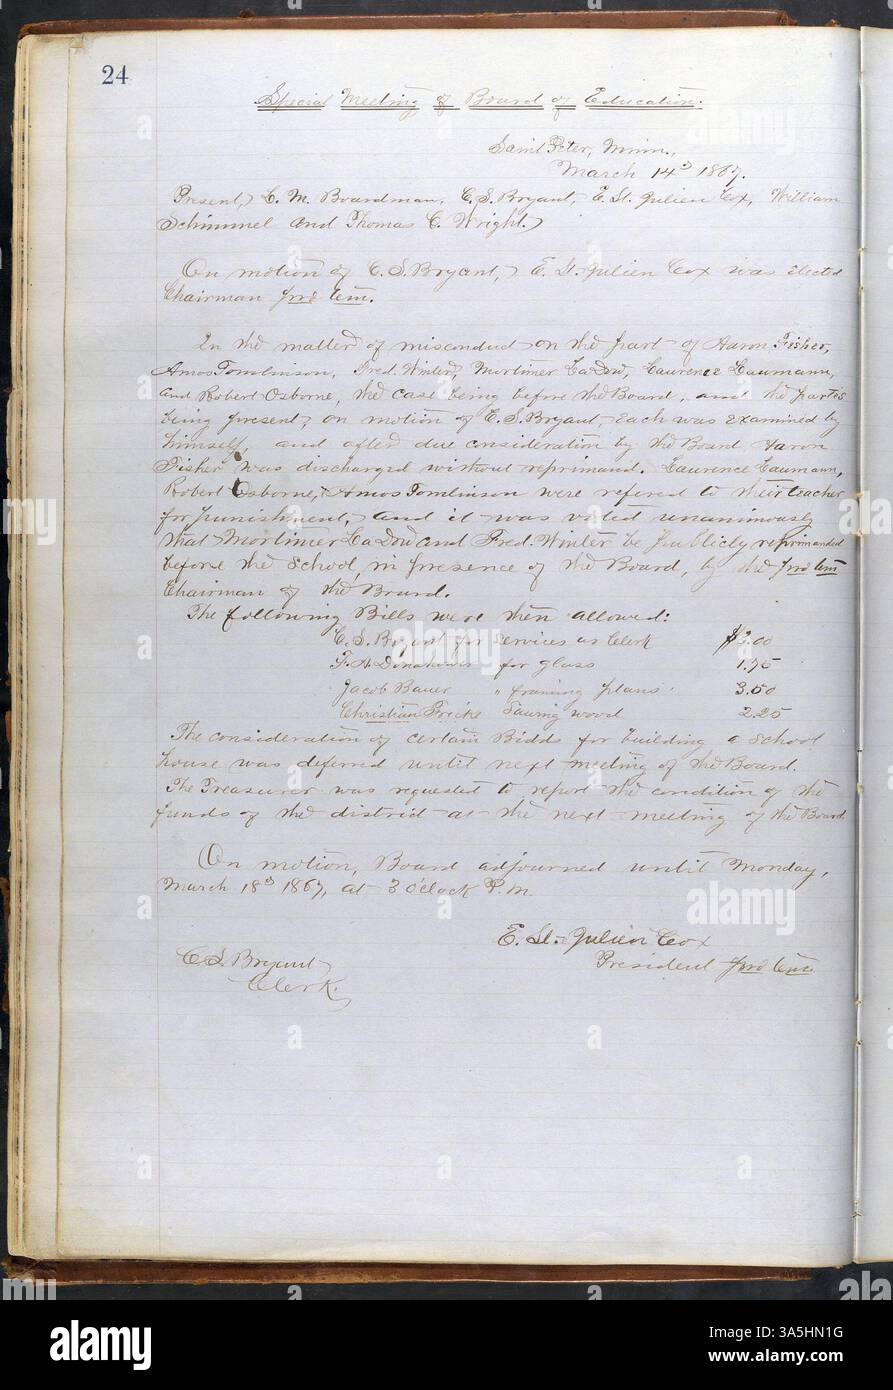 24
Special Meeting of Board of Education.
Saint Peter, Minn.,
March 14th 1867.
Present, C. M. Boardman, C. S. Bryant, E. St. Julien Cox, William
Schimmel and Thomas C. Wright.
On motion of C. S. Bryant, E. St. Julien Cox was elected
Chairman pro tem.
In the matter of misconduct on the part of Aaron Fisher,
Amos Tomlinson, Fred. Winter, Mortimer LaDow, Laurence Laumann,
and Robert Osborne, the case being before the Board, and the parties
being present, on motion of C. S. Bryant, each was examined by
himself, and after due consideration by the Board Aaron
Fisher was discharged without reprimand. Laurence Laumann,
Robert Osborne, Amos Tomlinson were refered to their teacher
for punishment, and it was voted unanimously
that Mortimer LaDow and Fred. Winter be publicly reprimanded
before the School, in presence of the Board, by the pro tem
Chairman of the Board.
The following Bills were then allowed:
C. S. Bryant for Services as Clerk $3.00
F. A. Donahower for glass 1.75
Jacob Bauer " framing plans 3.50
Christian Fricke Sawing wood 2.25
The consideration of certain Bidds for building a School
house was deferred until next meeting of the Board.
The Treasurer was requested to report the condition of the
funds of the district at the next meeting of the Board.
On motion, Board adjourned until Monday,
March 18th 1867, at 3 O'clock P.M.
E. St. Julien Cox
President pro tem.
C. S. Bryant
Clerk.
alamy
Image ID: 3A5HN1G
www.alamy.com